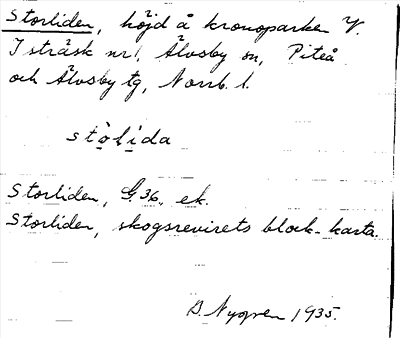 Storliden, höjd å kronoparken V.
Isträsk nr 1, Älvsby sn, Piteå
och Älvsby tg, Norrb. l.
stòlida
Storliden, G. 36, ek.
Storliden, skogsrevirets block-karta.
D. Nygren 1935.